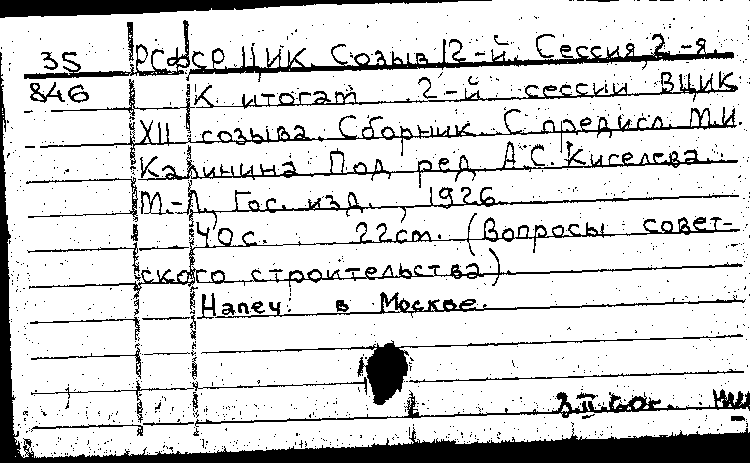 35 РСФСР ЦИК. Созыв 12-й. Сессия 2-я.
846 К итогам 2-й сессии ВЦИК
XII созыва. Сборник. С предисл. М.И.
Калинина. Под ред. А.С. Киселева.
М.-Л., Гос. изд., 1926
40с. 22cm. (Вопросы совет-
ского строительства).
Напеч. в Москве.
3.II.60г.